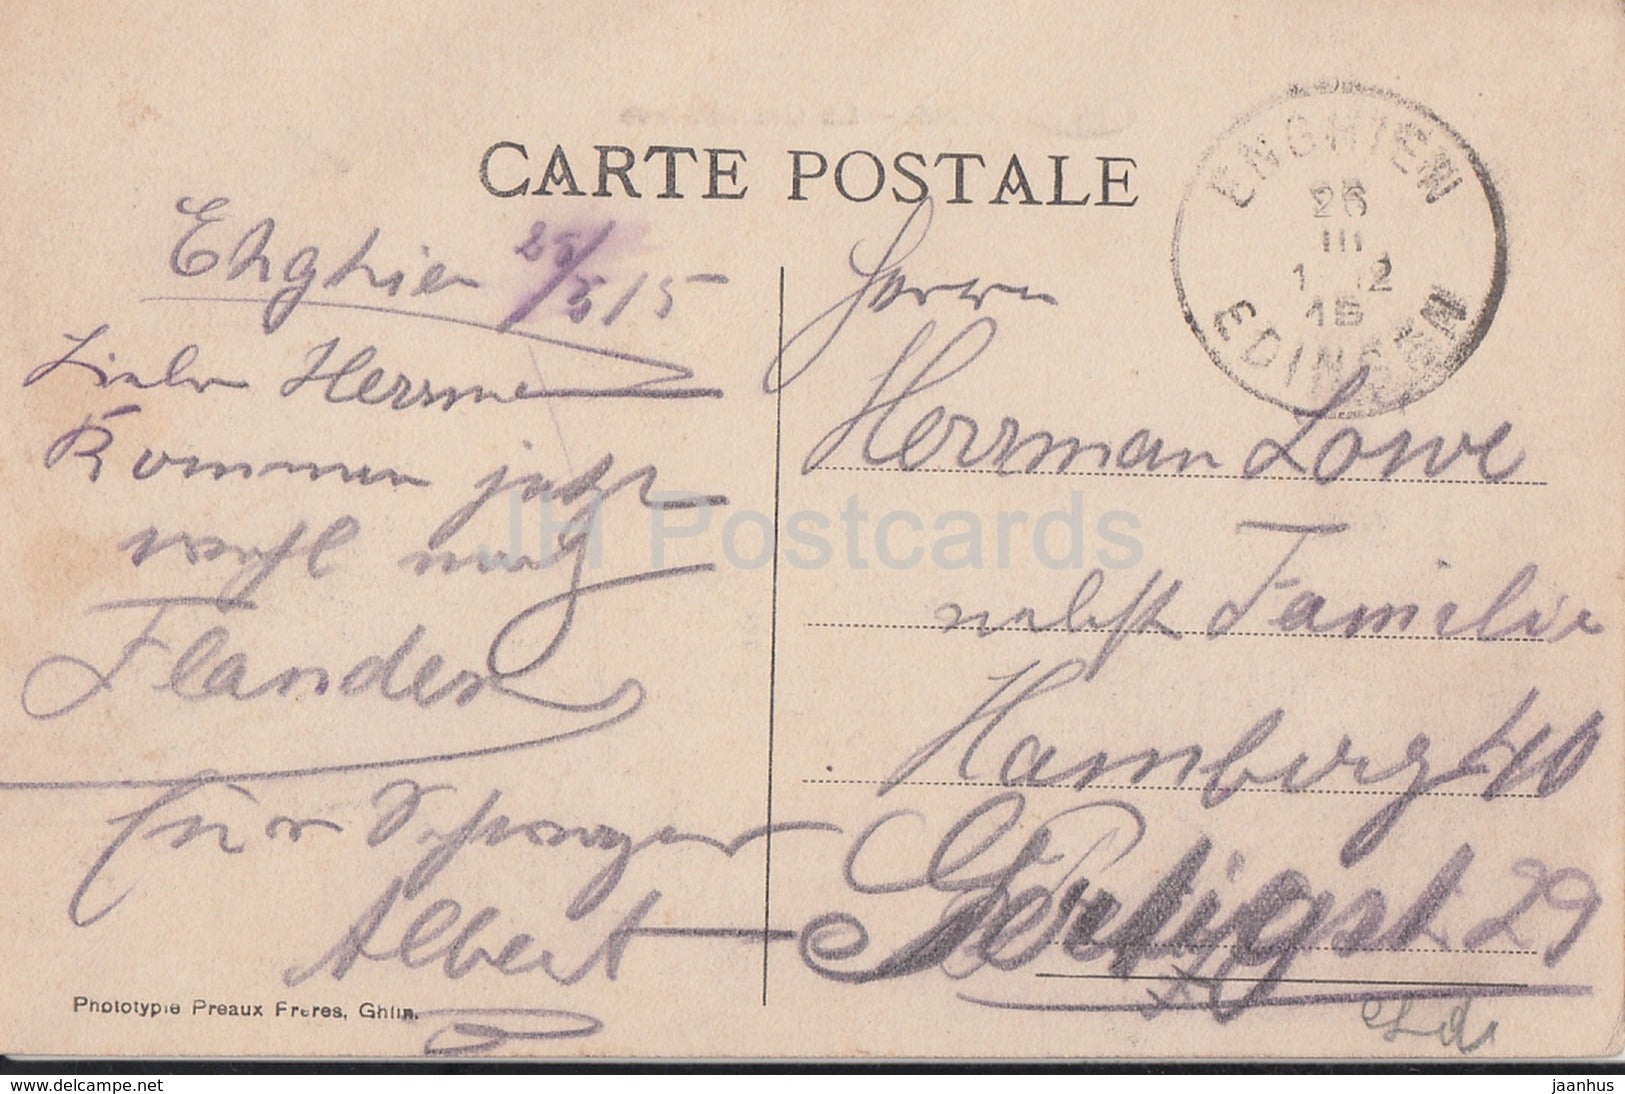 CARTE POSTALE
ENGHIEN
26
III
1 12
15
EDINGEN
Enghien 25/3 15
Lieber Herrman
Kommen jetzt
wohl nach
Flandern
Albert
Herrn
Herrman Löwe
nebst Familie
Hamburg
29
Phototypie Preaux Freres, Ghlin.
JH Postcards
www.delcampe.net
jaanhus